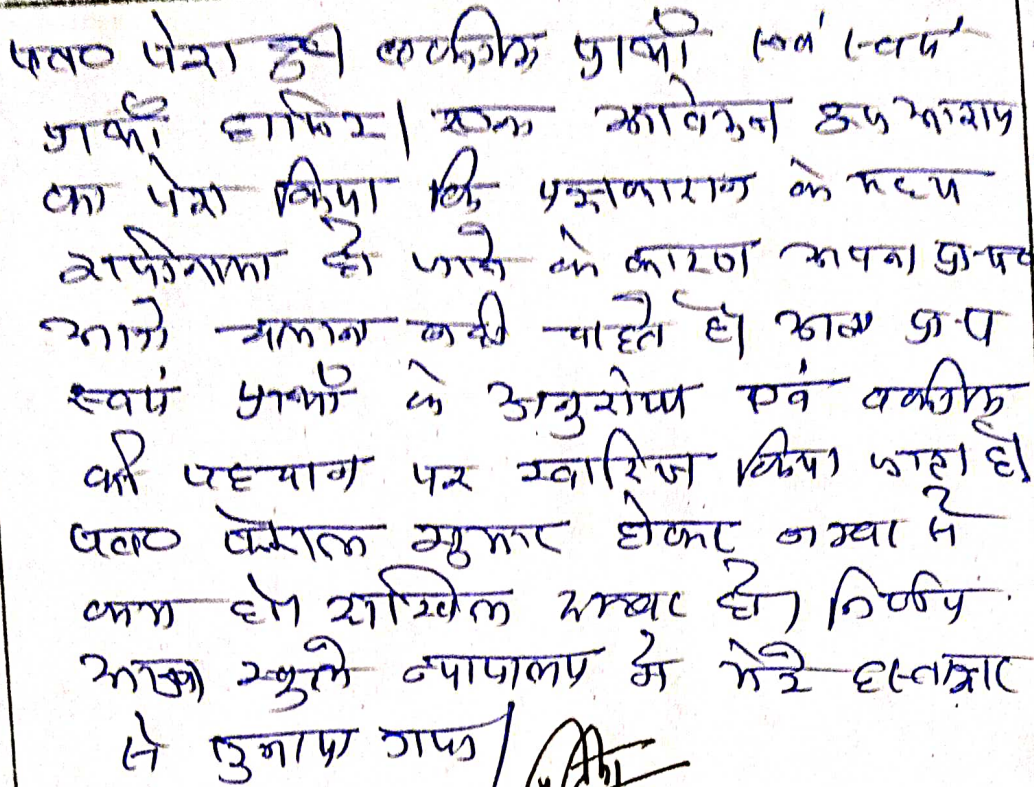 पत्रा० पेश हुई वकील प्रार्थी एवं स्वयं
प्रार्थी हाजिर। एक आवेदन इस आशय
का पेश किया कि पक्षकारान के मध्य
राजीनामा हो जाने के कारण अपना प्रा-पत्र
आगे चलाना नहीं चाहते है। अतः प्रा-प
स्वयं प्रार्थी के अनुरोध एवं वकील
की पहचान पर खारिज किया जाता है।
पत्रा० फैसल शुमार होकर नम्बर से
कम हो दाखिल दफ्तर हो। निर्णय
आज खुले न्यायालय में मेरे हस्ताक्षर
से सुनाया गया।